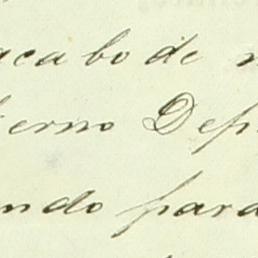 acabo de
erno Dep
ndo para